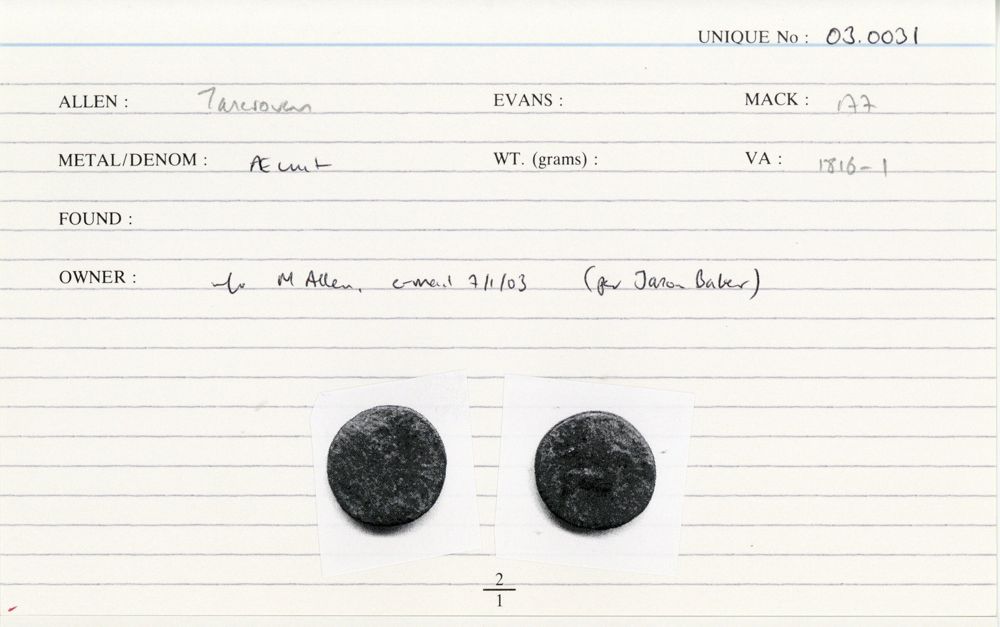 UNIQUE No : 03.0031
ALLEN : Tasciovan EVANS : MACK : 177
METAL/DENOM : Æ unit WT. (grams) : VA : 1816-1
FOUND :
OWNER : M Allen, e-mail 7/1/03 (per Jason Baker)
2
1